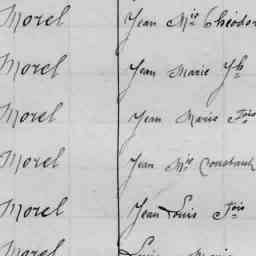 Morel Jean Mie Théodor
Morel Jean Marie Jh
Morel Jean Marie Fois
Morel Jean Mie Constant
Morel Jean Louis Fois
Morel Louis Marie